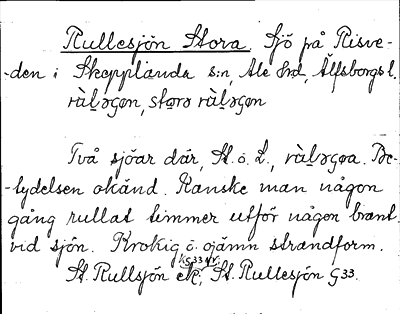 Rullesjön Stora. Sjö på Risve-
-den i Skepplanda s:n, Ale hrd, Älfsborgs l.
rùl̥əʂøn, stọrə rùl̥əʂøn
Två sjöar där, St. o. L., rùl̥əʂøa. Be-
-tydelsen okänd. Kanske man någon
gång rullat timmer utför någon brant
vid sjön. Krokig o. ojämn strandform.
St. Rullsjön ek, St. Rullesjön G 33.